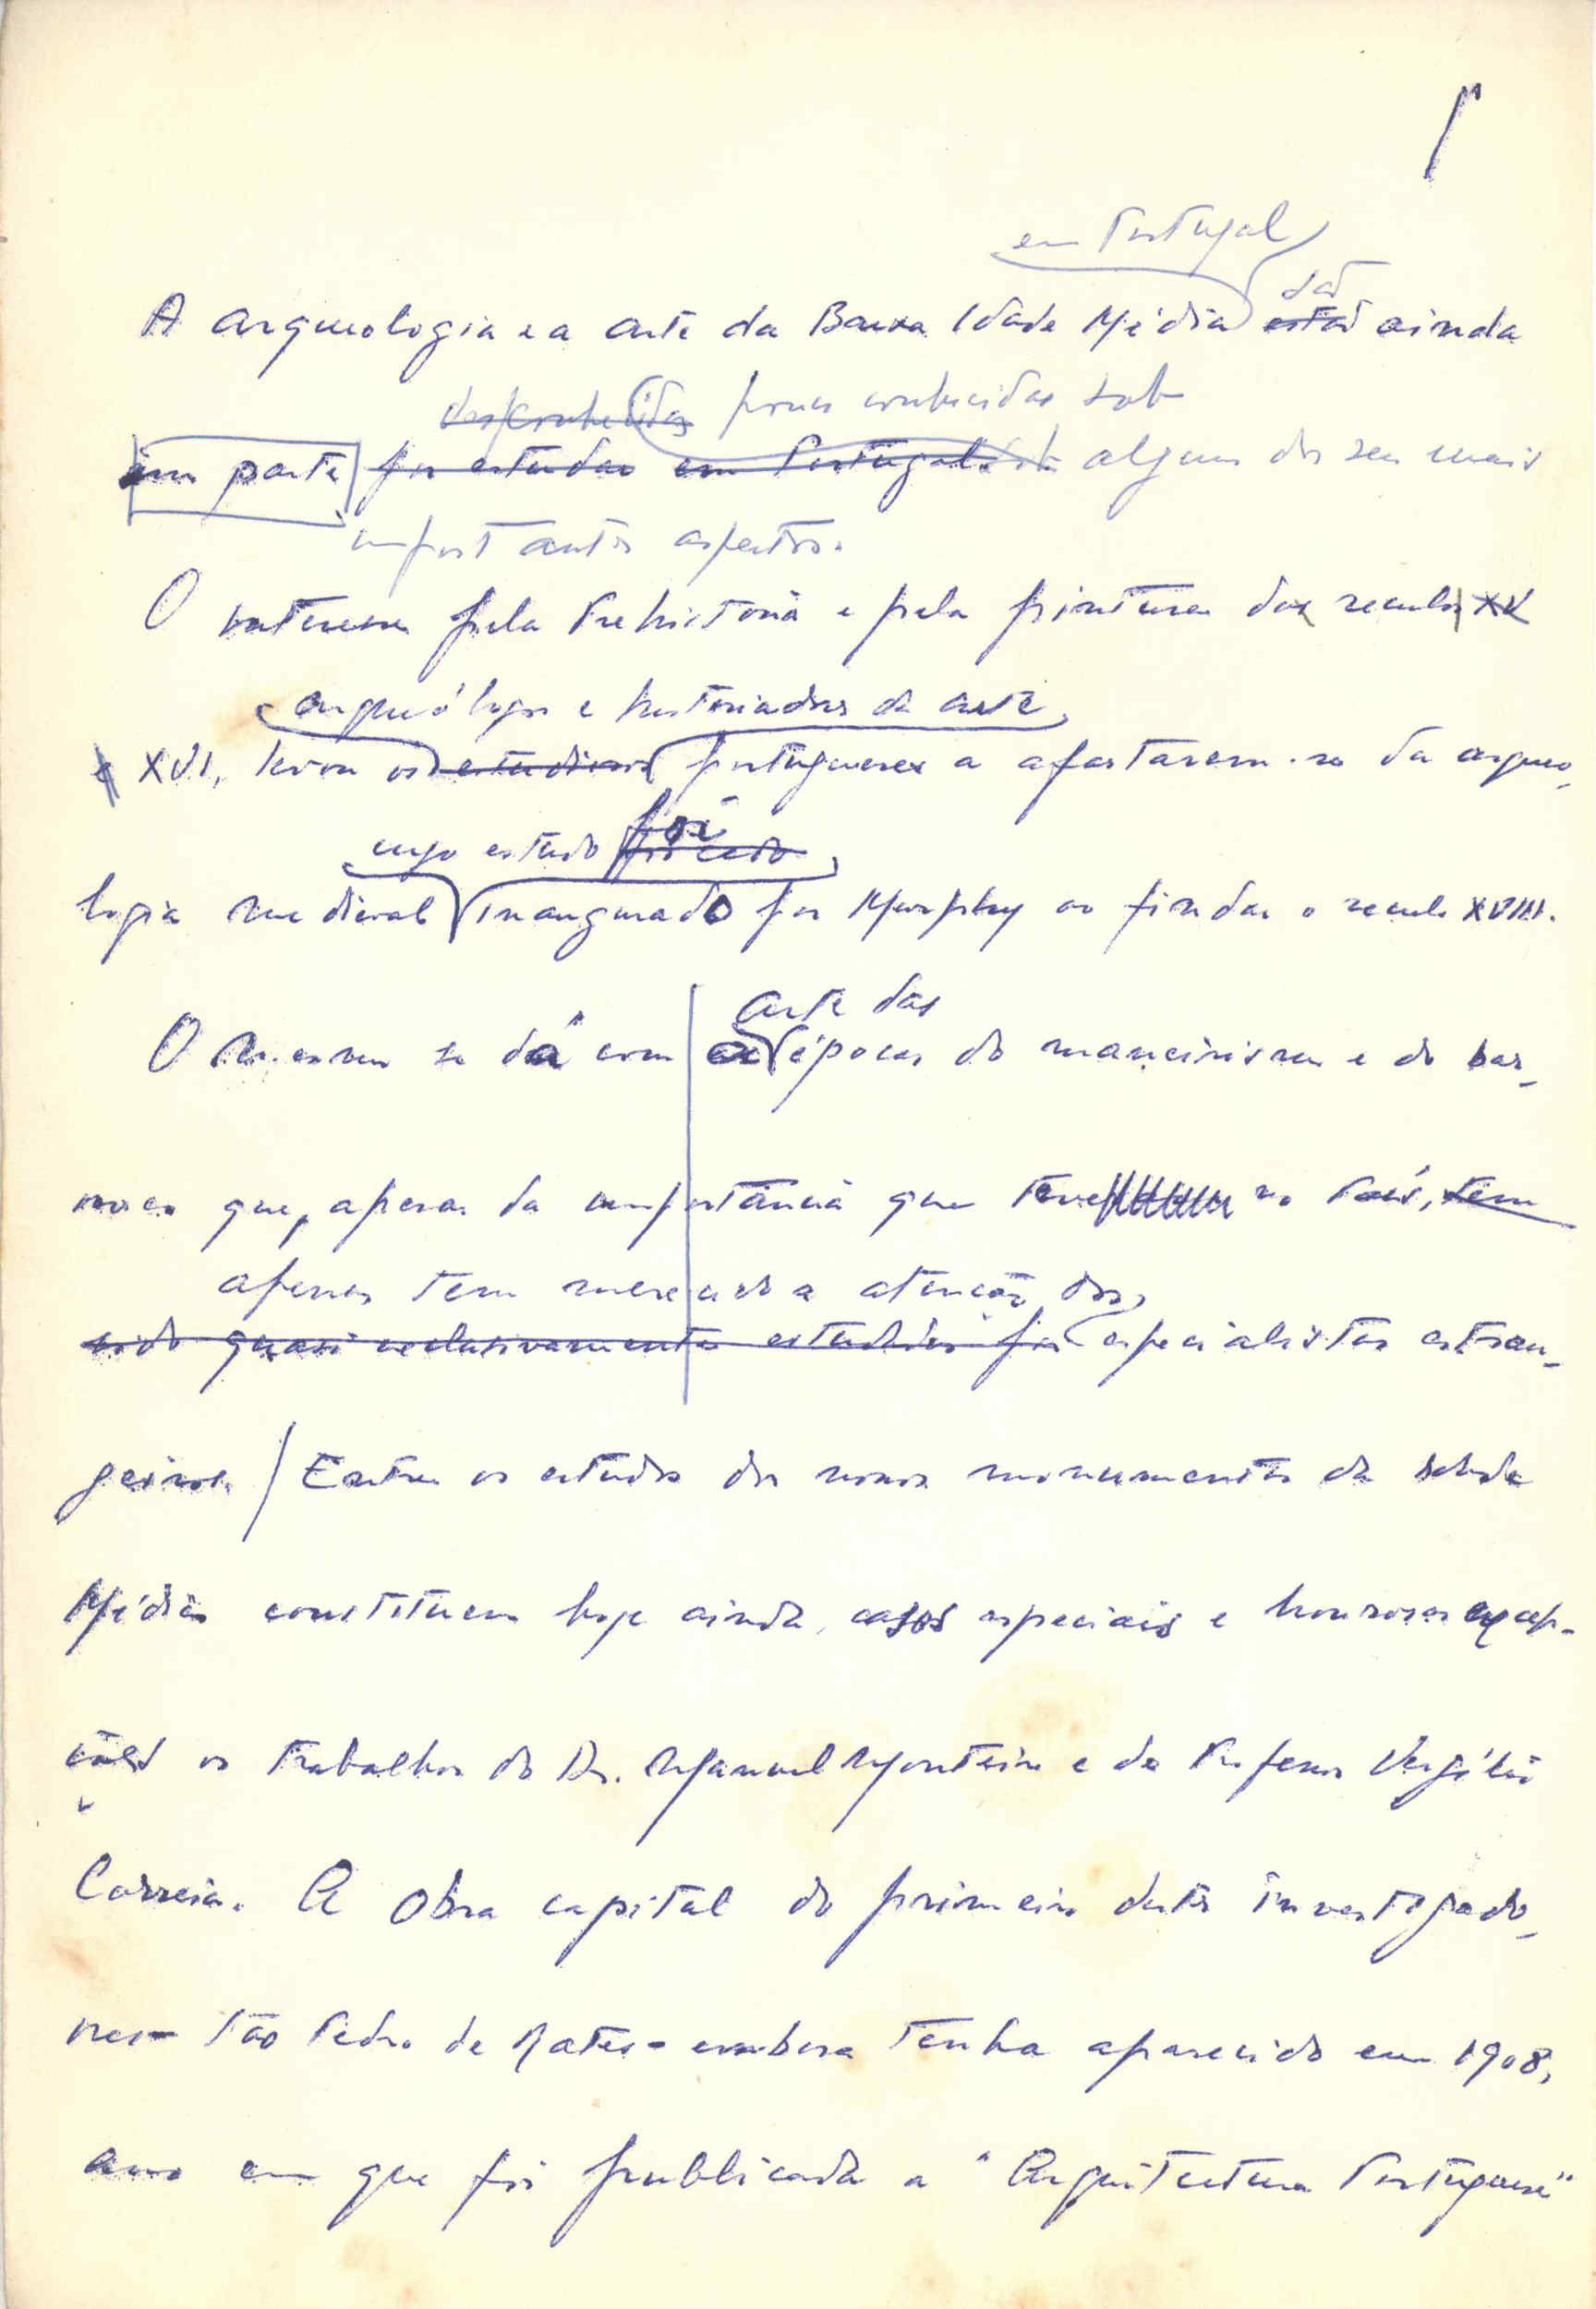 1
em Portugal
são
A arqueologia e a arte da Baixa Idade Média estão ainda
desconhecidas pouco conhecidas sob
em parte por estudar em Portugal sob alguns dos seus mais
importantes aspectos.
O interesse pela Prehistoria e pela pintura dos seculos XV
arqueólogos e historiadores da arte
e XVI, levou os estudiosos portugueses a afastarem-se da arqueo-
cujo estudo foi
logia medieval inaugurado por Murphy ao findar o seculo XVIII.
arte das
O mesmo se dá com as épocas do maneirismo e do bar-
roco que, apesar da importância que teve no País, tem
apenas tem merecido a atenção dos
sido quasi exclusivamente estudados por especialistas estran-
geiros / Entre os estudos dos nossos monumentos da Idade
Média constituem hoje ainda casos especiais e honrosas excep-
ções os trabalhos do Dr. Manuel Monteiro e do Professor Vergílio
Correia. A obra capital do primeiro destes investigado-
res - São Pedro de Rates - embora tenha aparecido em 1908,
ano em que foi publicada a "Arquitectura Portuguesa"